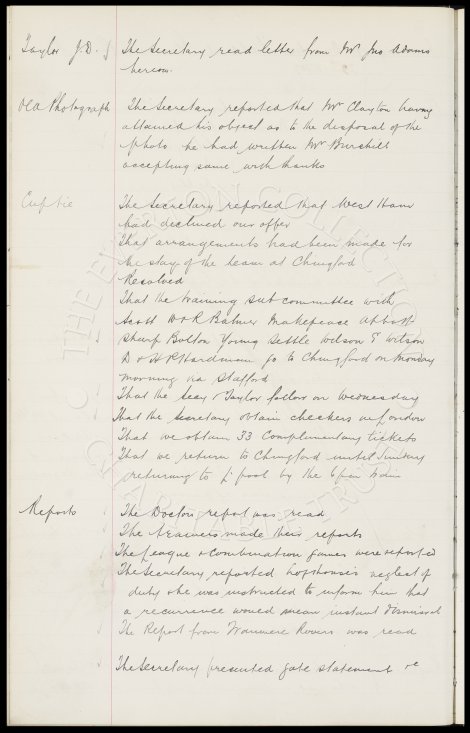 Taylor J.D. } The Secretary read letter from Mr Jno Adams
hereon.
Old Photograph The Secretary reported that Mr Clayton having
attained his object as to the disposal of the
photo he had written Mr Birchill
accepting same with thanks
Cup tie The Secretary reported that West Ham
had declined our offer
That arrangements had been made for
the stay of the team at Chingford
Resolved
That the training sub committee with
Scott W & R Balmer Makepeace Abbott
Sharp Bolton Young Settle Wilson G Wilson
D & H P Hardman go to Chingford on Monday
morning via Stafford
That the Secy & Taylor follow on Wednesday
That the Secretary obtain checkers in London
That we obtain 33 Complimentary tickets
That we return to Chingford until Sunday
returning to L'pool by the 6pm train
Reports The Doctors report was read
The trainers made their reports
The League & Combination games were reported
The Secretary reported neglect of
duty & he was instructed to inform him that
a recurrence would mean instant dismissal
The Report from Rovers was read
The Secretary presented gate statement re
THE EVERTON COLLECTION
CHARITABLE TRUST